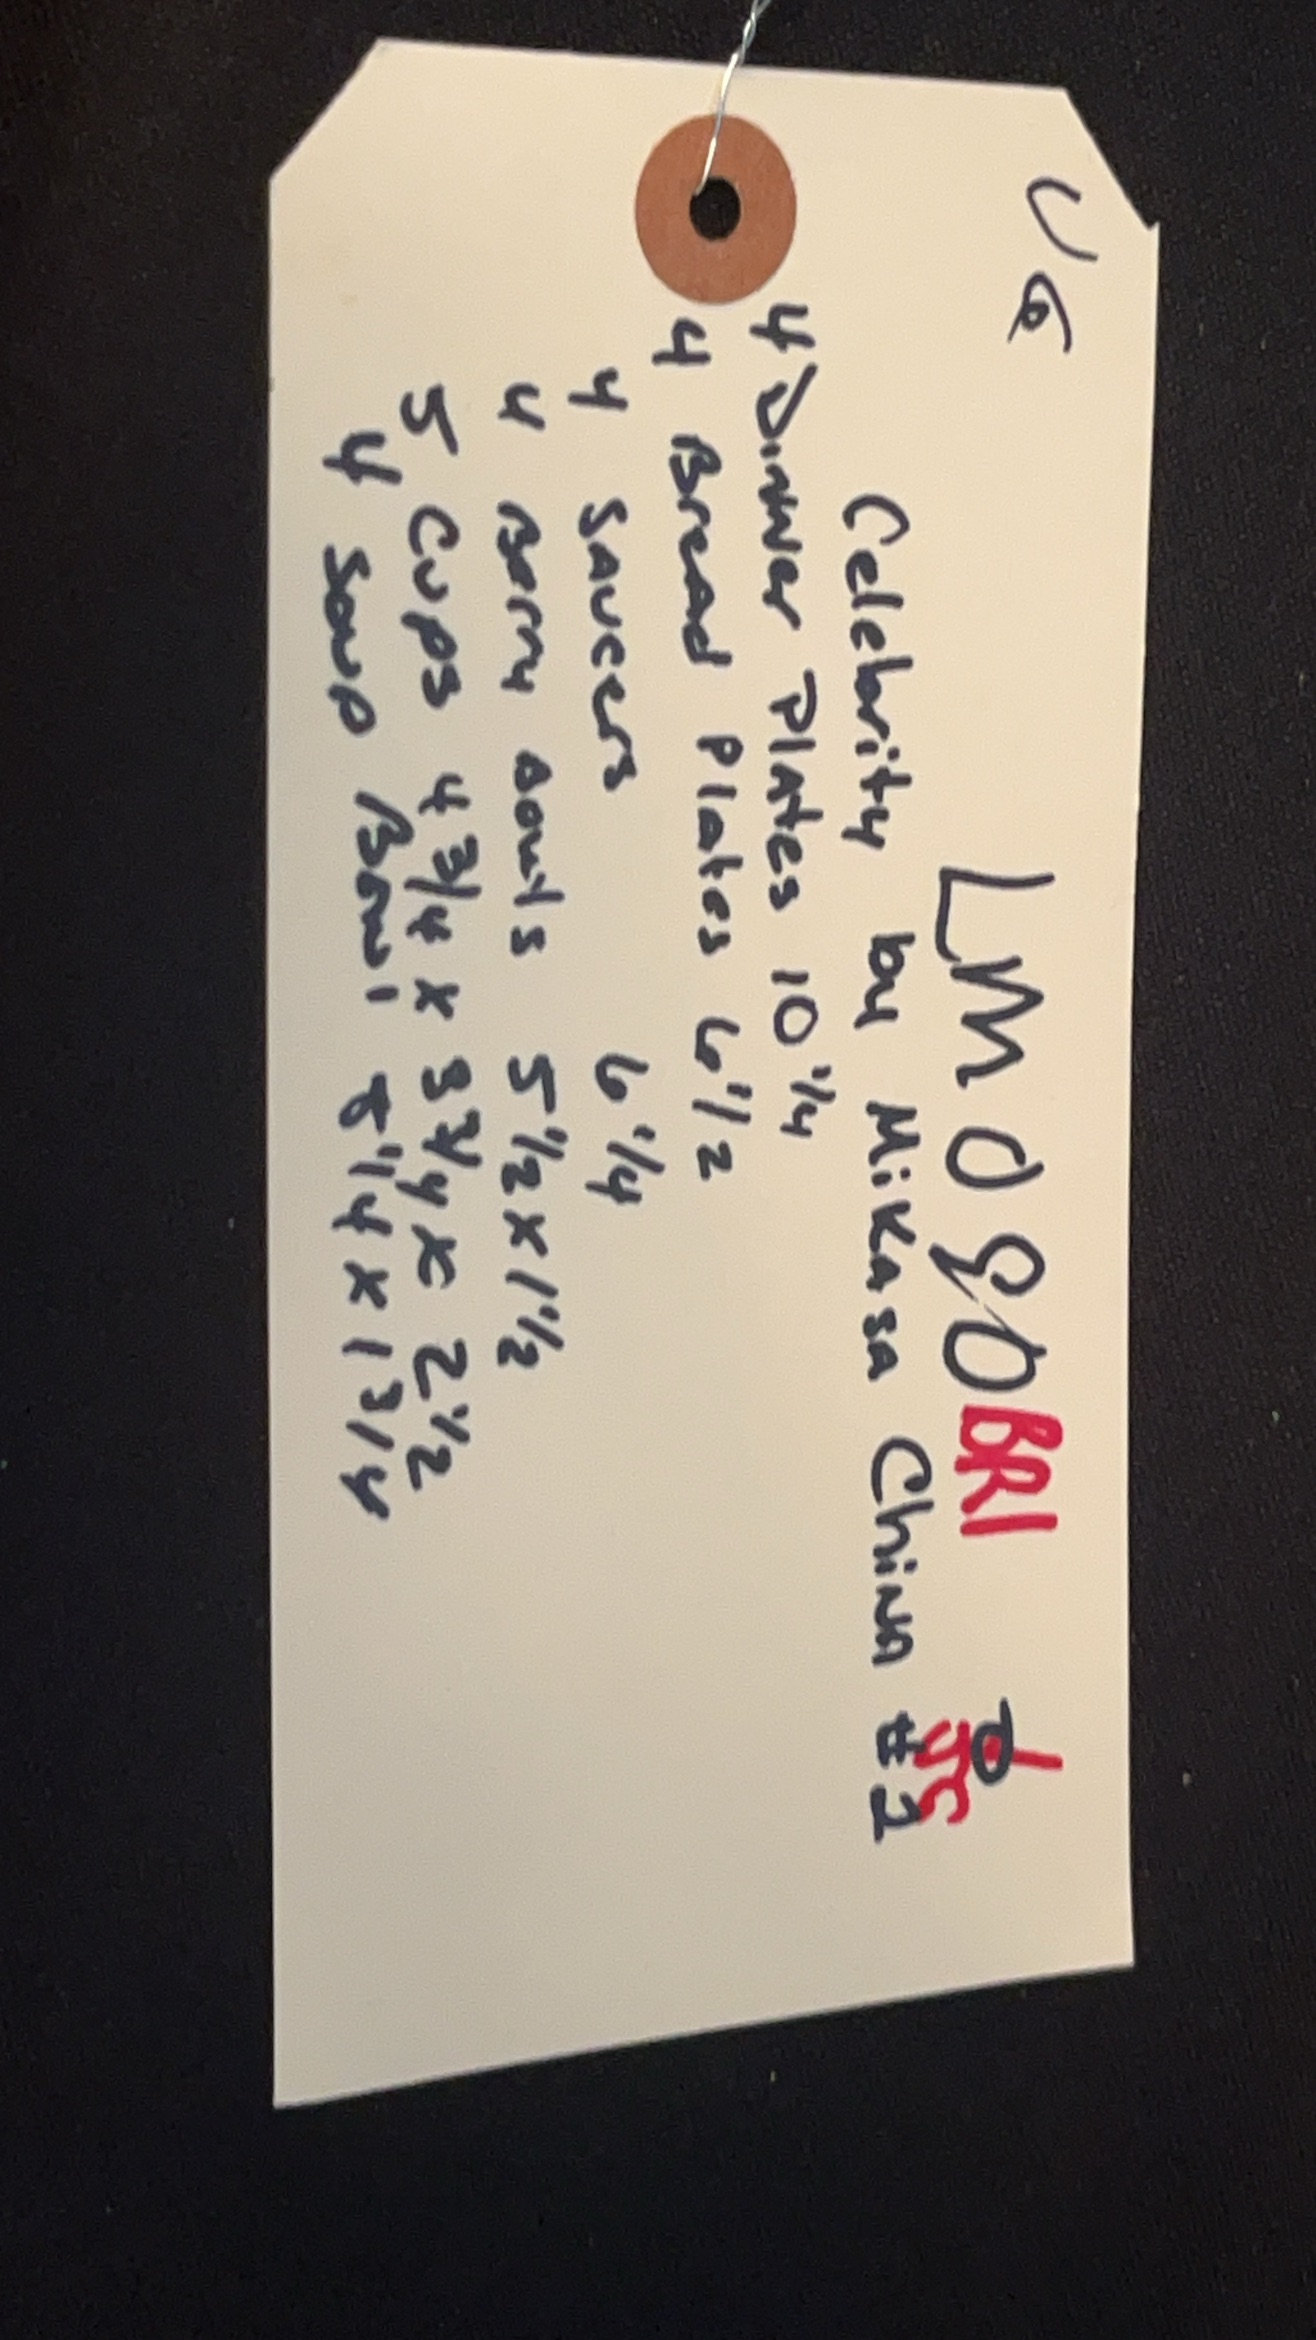 VG
LMO80 BR1
Celebrity by Mikasa China #2
4 Dinner Plates 10 1/4
4 Bread Plates 6 1/2
4 Saucers 6 1/4
4 Berry Bowls 5 1/2 x 1 1/2
5 Cups 4 3/4 x 3 3/4 x 2 1/2
4 Soup Bowl 8 1/4 x 1 3/4